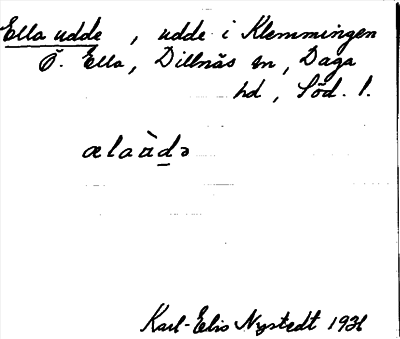 Ella udde , udde i Klemmingen
Ö. Ella, Dillnäs sn, Daga
hd , Söd. l.
ælaùdə
Karl-Elis Nystedt 1936